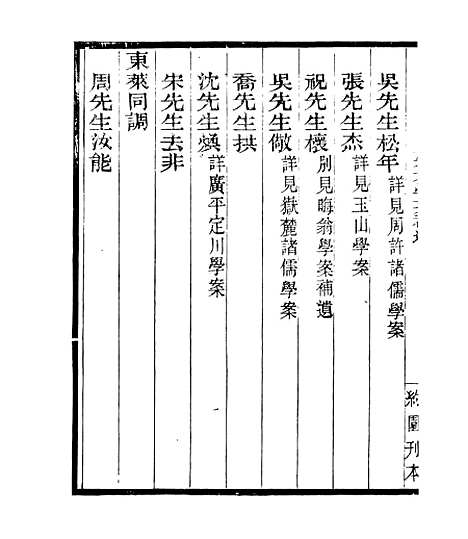 吳先生松年 詳見周許諸儒學案
張先生杰 詳見玉山學案
祝先生櫰 別見晦翁學案補遺
吳先生儆 詳見嶽麓諸儒學案
喬先生拱
沈先生煥 詳廣平定川學案
宋先生去非
東萊同調
周先生汝能
約園刊本